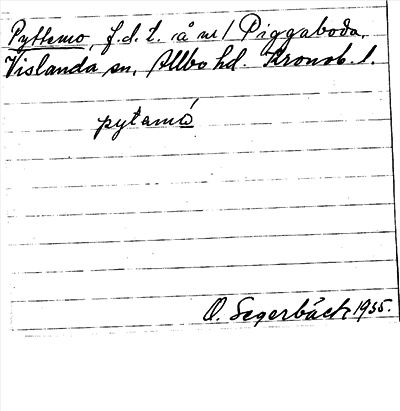 Pyttemo, f.d. t. (å m) Piggaboda,
Vislanda sn, Allbo hd. Kronob. l.
pytamo
O. Segerbäck 1935.